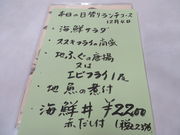 本日の日替りランチコース
12月4日
・海鮮サラダ
・ススキフライの南蛮
・地ふぐの唐揚
又は
エビフライ1尾
・地魚の煮付
海鮮丼 ¥2200
赤だし付